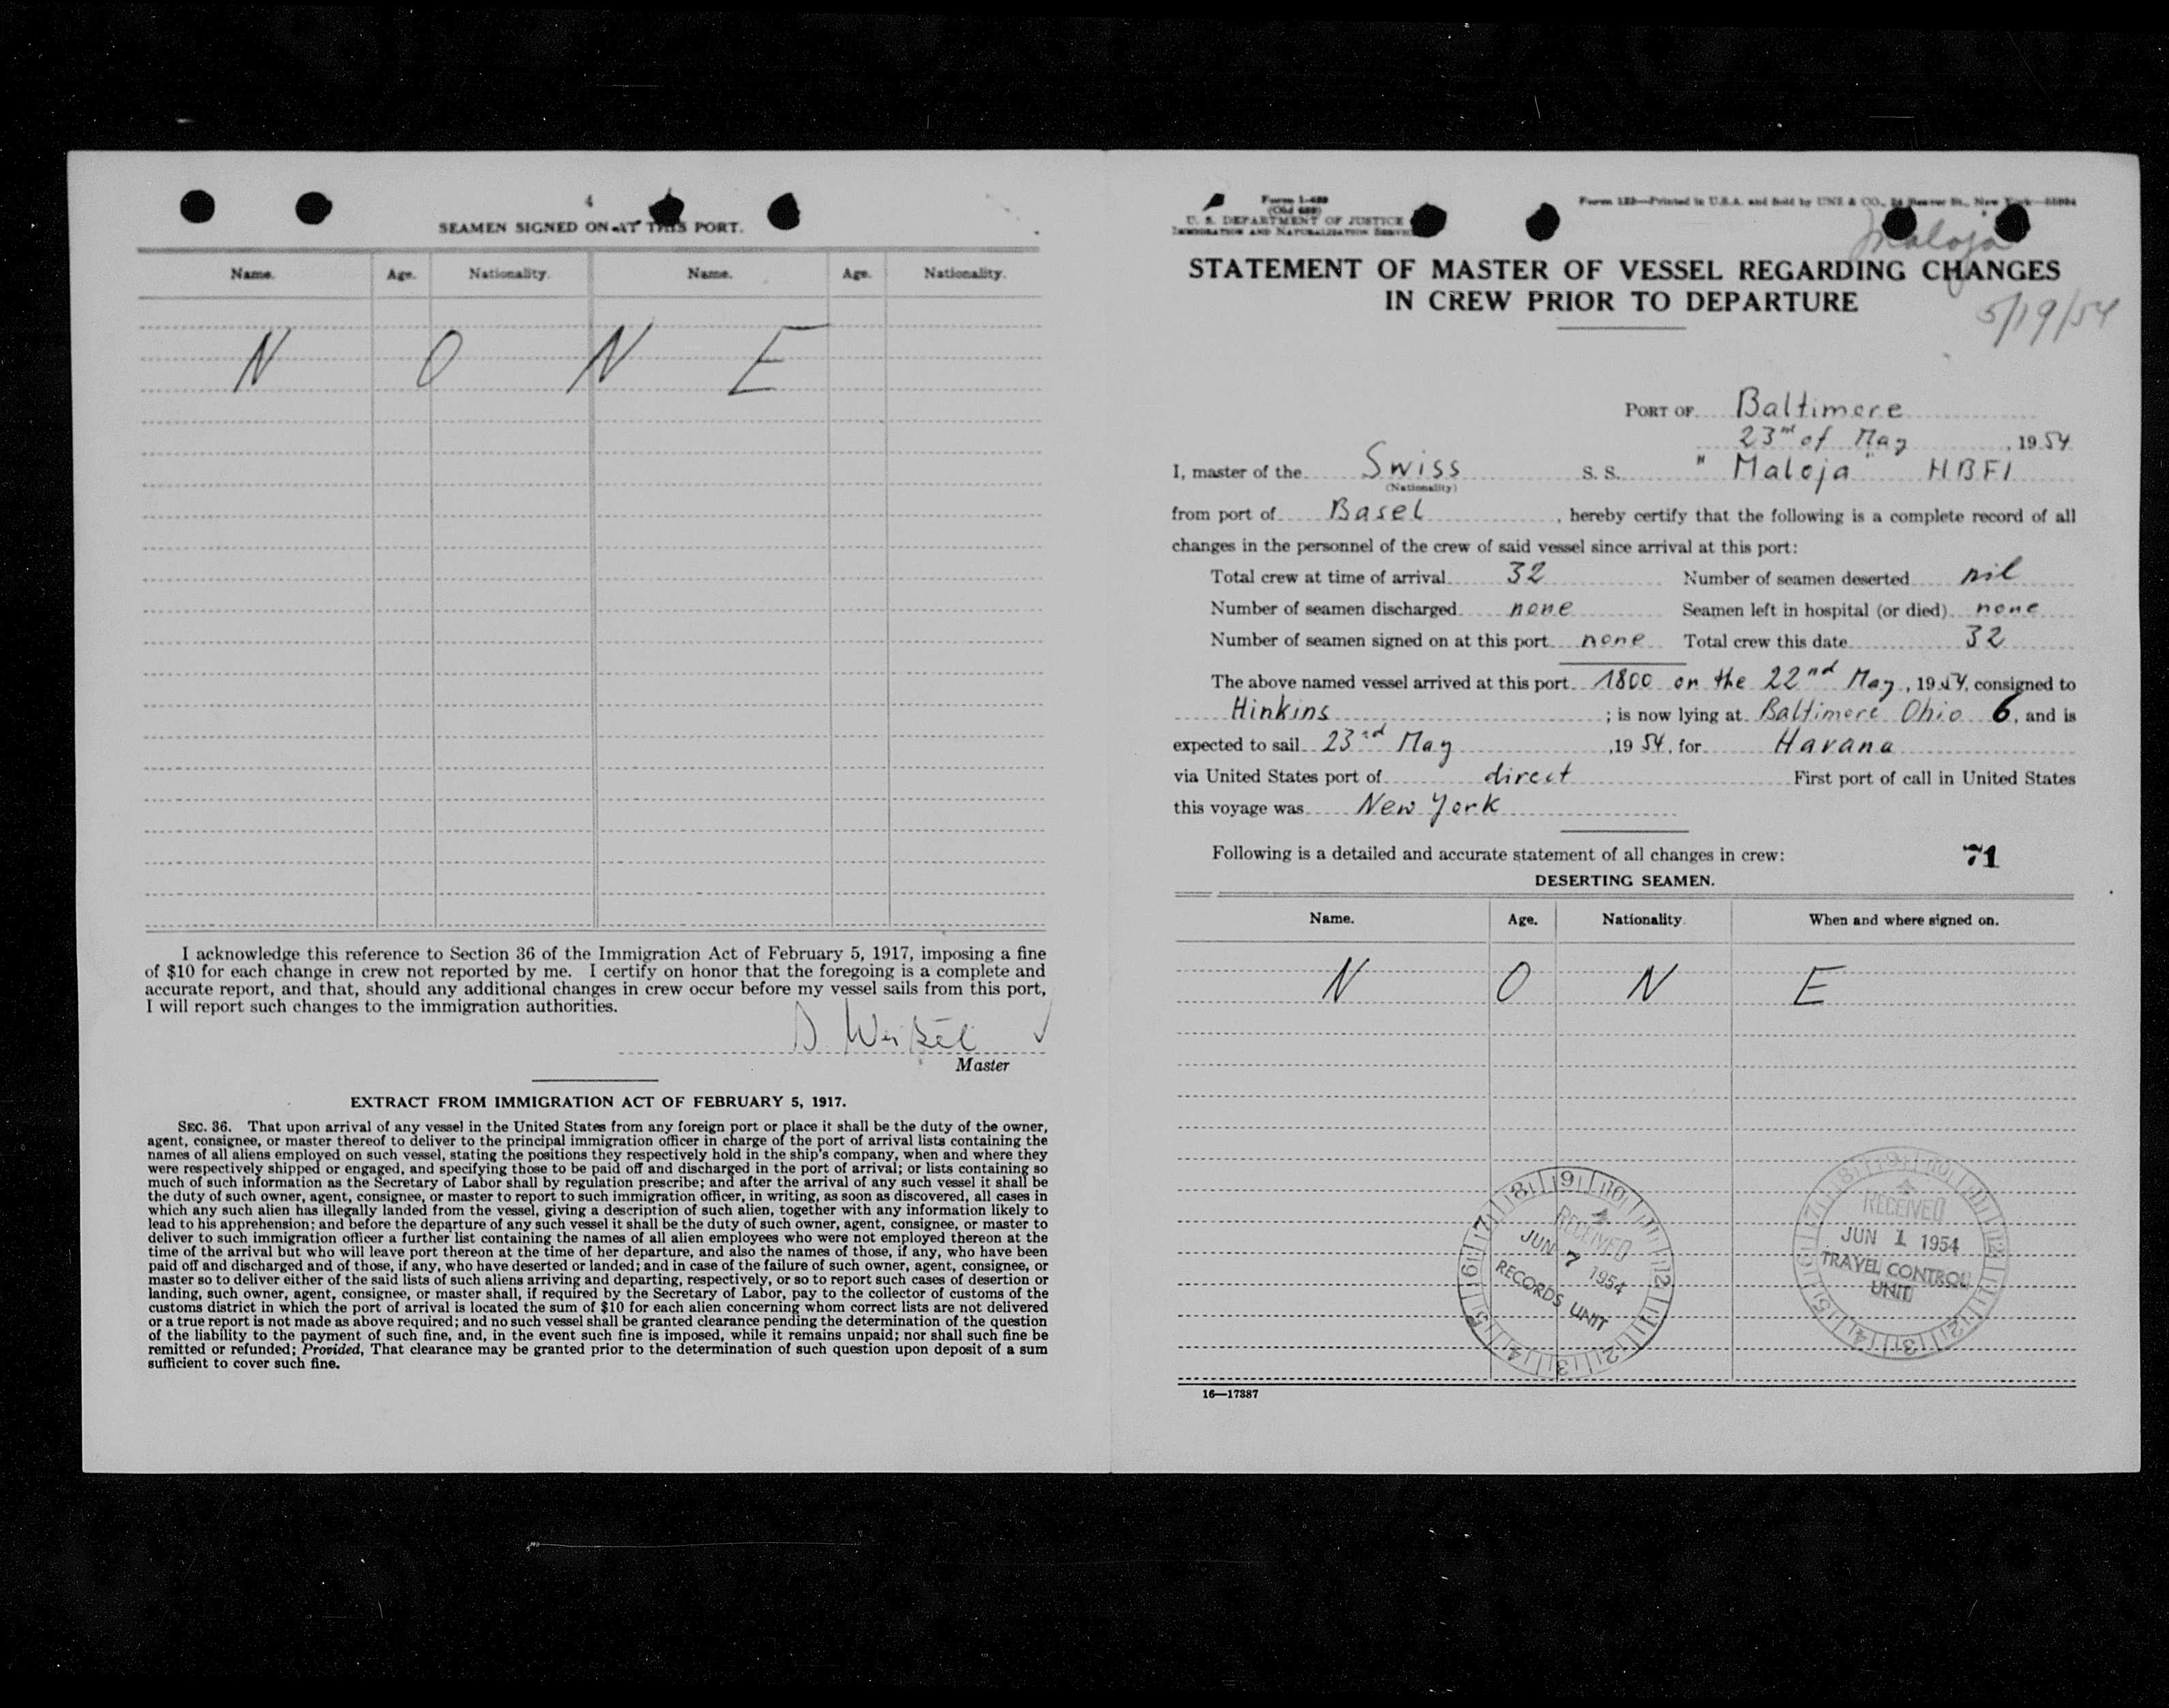 4
SEAMEN SIGNED ON AT THIS PORT.
Name. Age. Nationality. Name. Age. Nationality.
N O N E
I acknowledge this reference to Section 36 of the Immigration Act of February 5, 1917, imposing a fine
of $10 for each change in crew not reported by me. I certify on honor that the foregoing is a complete and
accurate report, and that, should any additional changes in crew occur before my vessel sails from this port,
I will report such changes to the immigration authorities.
Master
EXTRACT FROM IMMIGRATION ACT OF FEBRUARY 5, 1917.
SEC. 36. That upon arrival of any vessel in the United States from any foreign port or place it shall be the duty of the owner,
agent, consignee, or master thereof to deliver to the principal immigration officer in charge of the port of arrival lists containing the
names of all aliens employed on such vessel, stating the positions they respectively hold in the ship's company, when and where they
were respectively shipped or engaged, and specifying those to be paid off and discharged in the port of arrival; or lists containing so
much of such information as the Secretary of Labor shall by regulation prescribe; and after the arrival of any such vessel it shall be
the duty of such owner, agent, consignee, or master to report to such immigration officer, in writing, as soon as discovered, all cases in
which any such alien has illegally landed from the vessel, giving a description of such alien, together with any information likely to
lead to his apprehension; and before the departure of any such vessel it shall be the duty of such owner, agent, consignee, or master to
deliver to such immigration officer a further list containing the names of all alien employees who were not employed thereon at the
time of the arrival but who will leave port thereon at the time of her departure, and also the names of those, if any, who have been
paid off and discharged and of those, if any, who have deserted or landed; and in case of the failure of such owner, agent, consignee, or
master so to deliver either of the said lists of such aliens arriving and departing, respectively, or so to report such cases of desertion or
landing, such owner, agent, consignee, or master shall, if required by the Secretary of Labor, pay to the collector of customs of the
customs district in which the port of arrival is located the sum of $10 for each alien concerning whom correct lists are not delivered
or a true report is not made as above required; and no such vessel shall be granted clearance pending the determination of the question
of the liability to the payment of such fine, and, in the event such fine is imposed, while it remains unpaid; nor shall such fine be
remitted or refunded; Provided, That clearance may be granted prior to the determination of such question upon deposit of a sum
sufficient to cover such fine.
U. S. DEPARTMENT OF JUSTICE
IMMIGRATION AND NATURALIZATION SERVICE
Form 122—Printed in U.S.A. and Sold by UNZ & CO., 24 Beaver St., New York
Maloja
STATEMENT OF MASTER OF VESSEL REGARDING CHANGES
IN CREW PRIOR TO DEPARTURE
5/19/54
PORT OF Baltimore
23rd of May, 1954
I, master of the Swiss S. S. "Maloja" HBFI
(Nationality)
from port of Basel, hereby certify that the following is a complete record of all
changes in the personnel of the crew of said vessel since arrival at this port:
Total crew at time of arrival 32 Number of seamen deserted nil
Number of seamen discharged none Seamen left in hospital (or died) none
Number of seamen signed on at this port none Total crew this date 32
The above named vessel arrived at this port 1800 on the 22nd May, 1954, consigned to
Hinkins; is now lying at Baltimore Ohio 6, and is
expected to sail 23rd May, 1954, for Havana
via United States port of direct First port of call in United States
this voyage was New York
Following is a detailed and accurate statement of all changes in crew: 71
DESERTING SEAMEN.
Name. Age. Nationality. When and where signed on.
N O N E
RECEIVED
JUN 7 1954
RECORDS UNIT
RECEIVED
JUN 1 1954
TRAVEL CONTROL
UNIT
16—17387